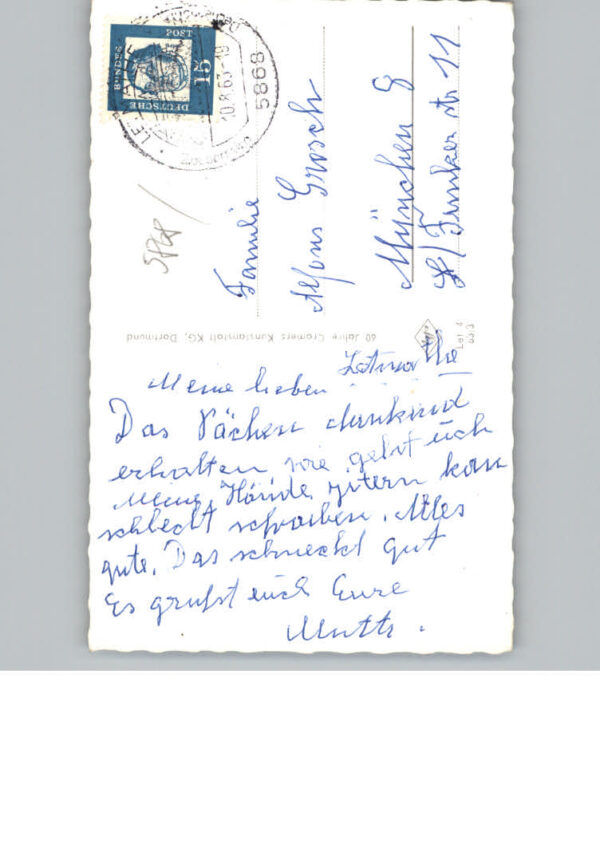 DEUTSCHE
BUNDES
POST
15
10.8.63-18
5868
5868
Familie
Alfons Grosch
München 8
Funker str 11
60 Jahre Cramers Kunstanstalt KG, Dortmund
Let 4
Letmathe
Meine lieben
Das Päckchen dankend
erhalten, wie geht euch
Meine Hände zitern kan
schlecht schraiben. Alles
gute. Das schmeckt gut
Es grußt euch Eure
Mutti.